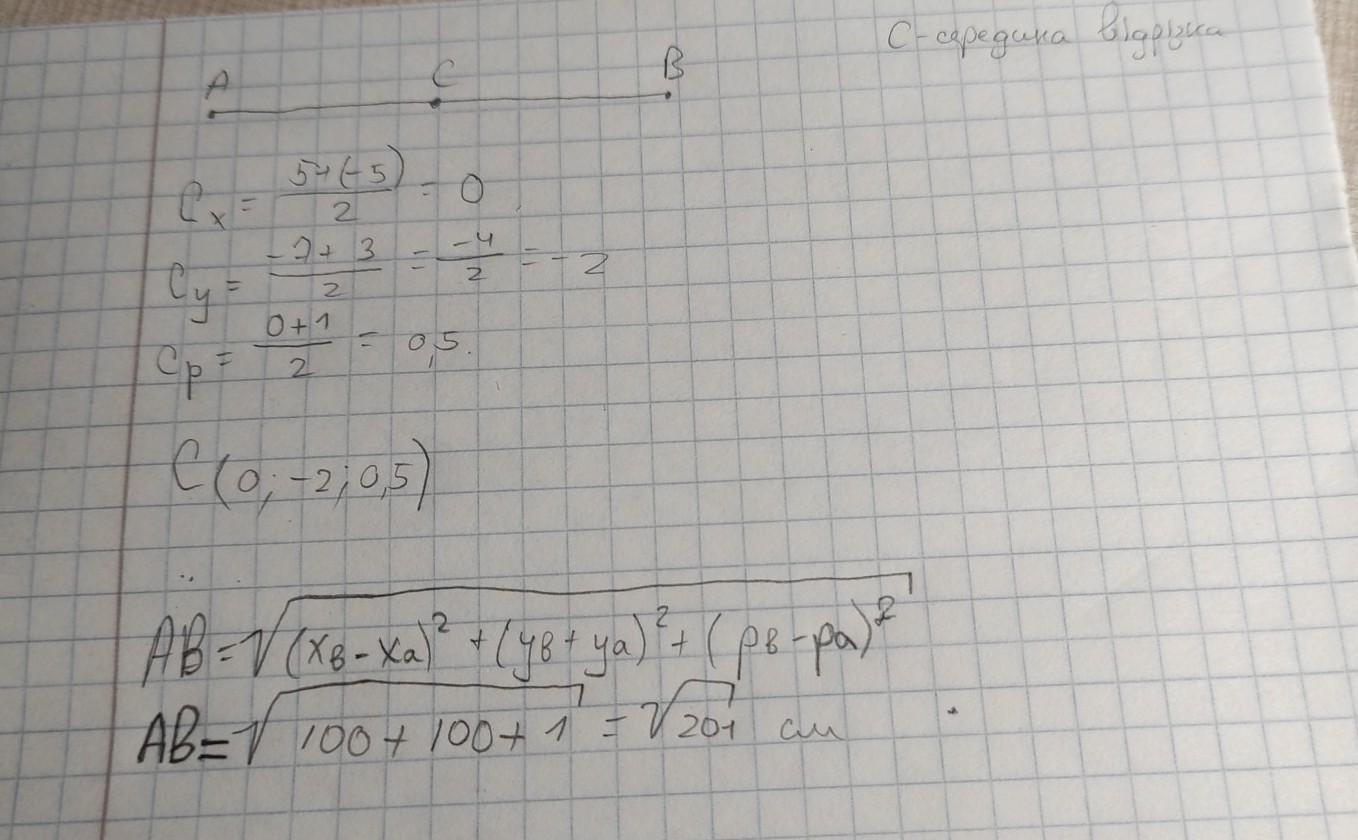 С-середина відрізка
A C B
Cx = 5+(-5)/2 = 0
Cy = -7+3/2 = -4/2 = -2
Cp = 0+1/2 = 0,5.
C(0;-2;0,5)
AB=√(xв-xa)²+(yв+ya)²+(pв-pa)²
AB=√100+100+1 = √201 см